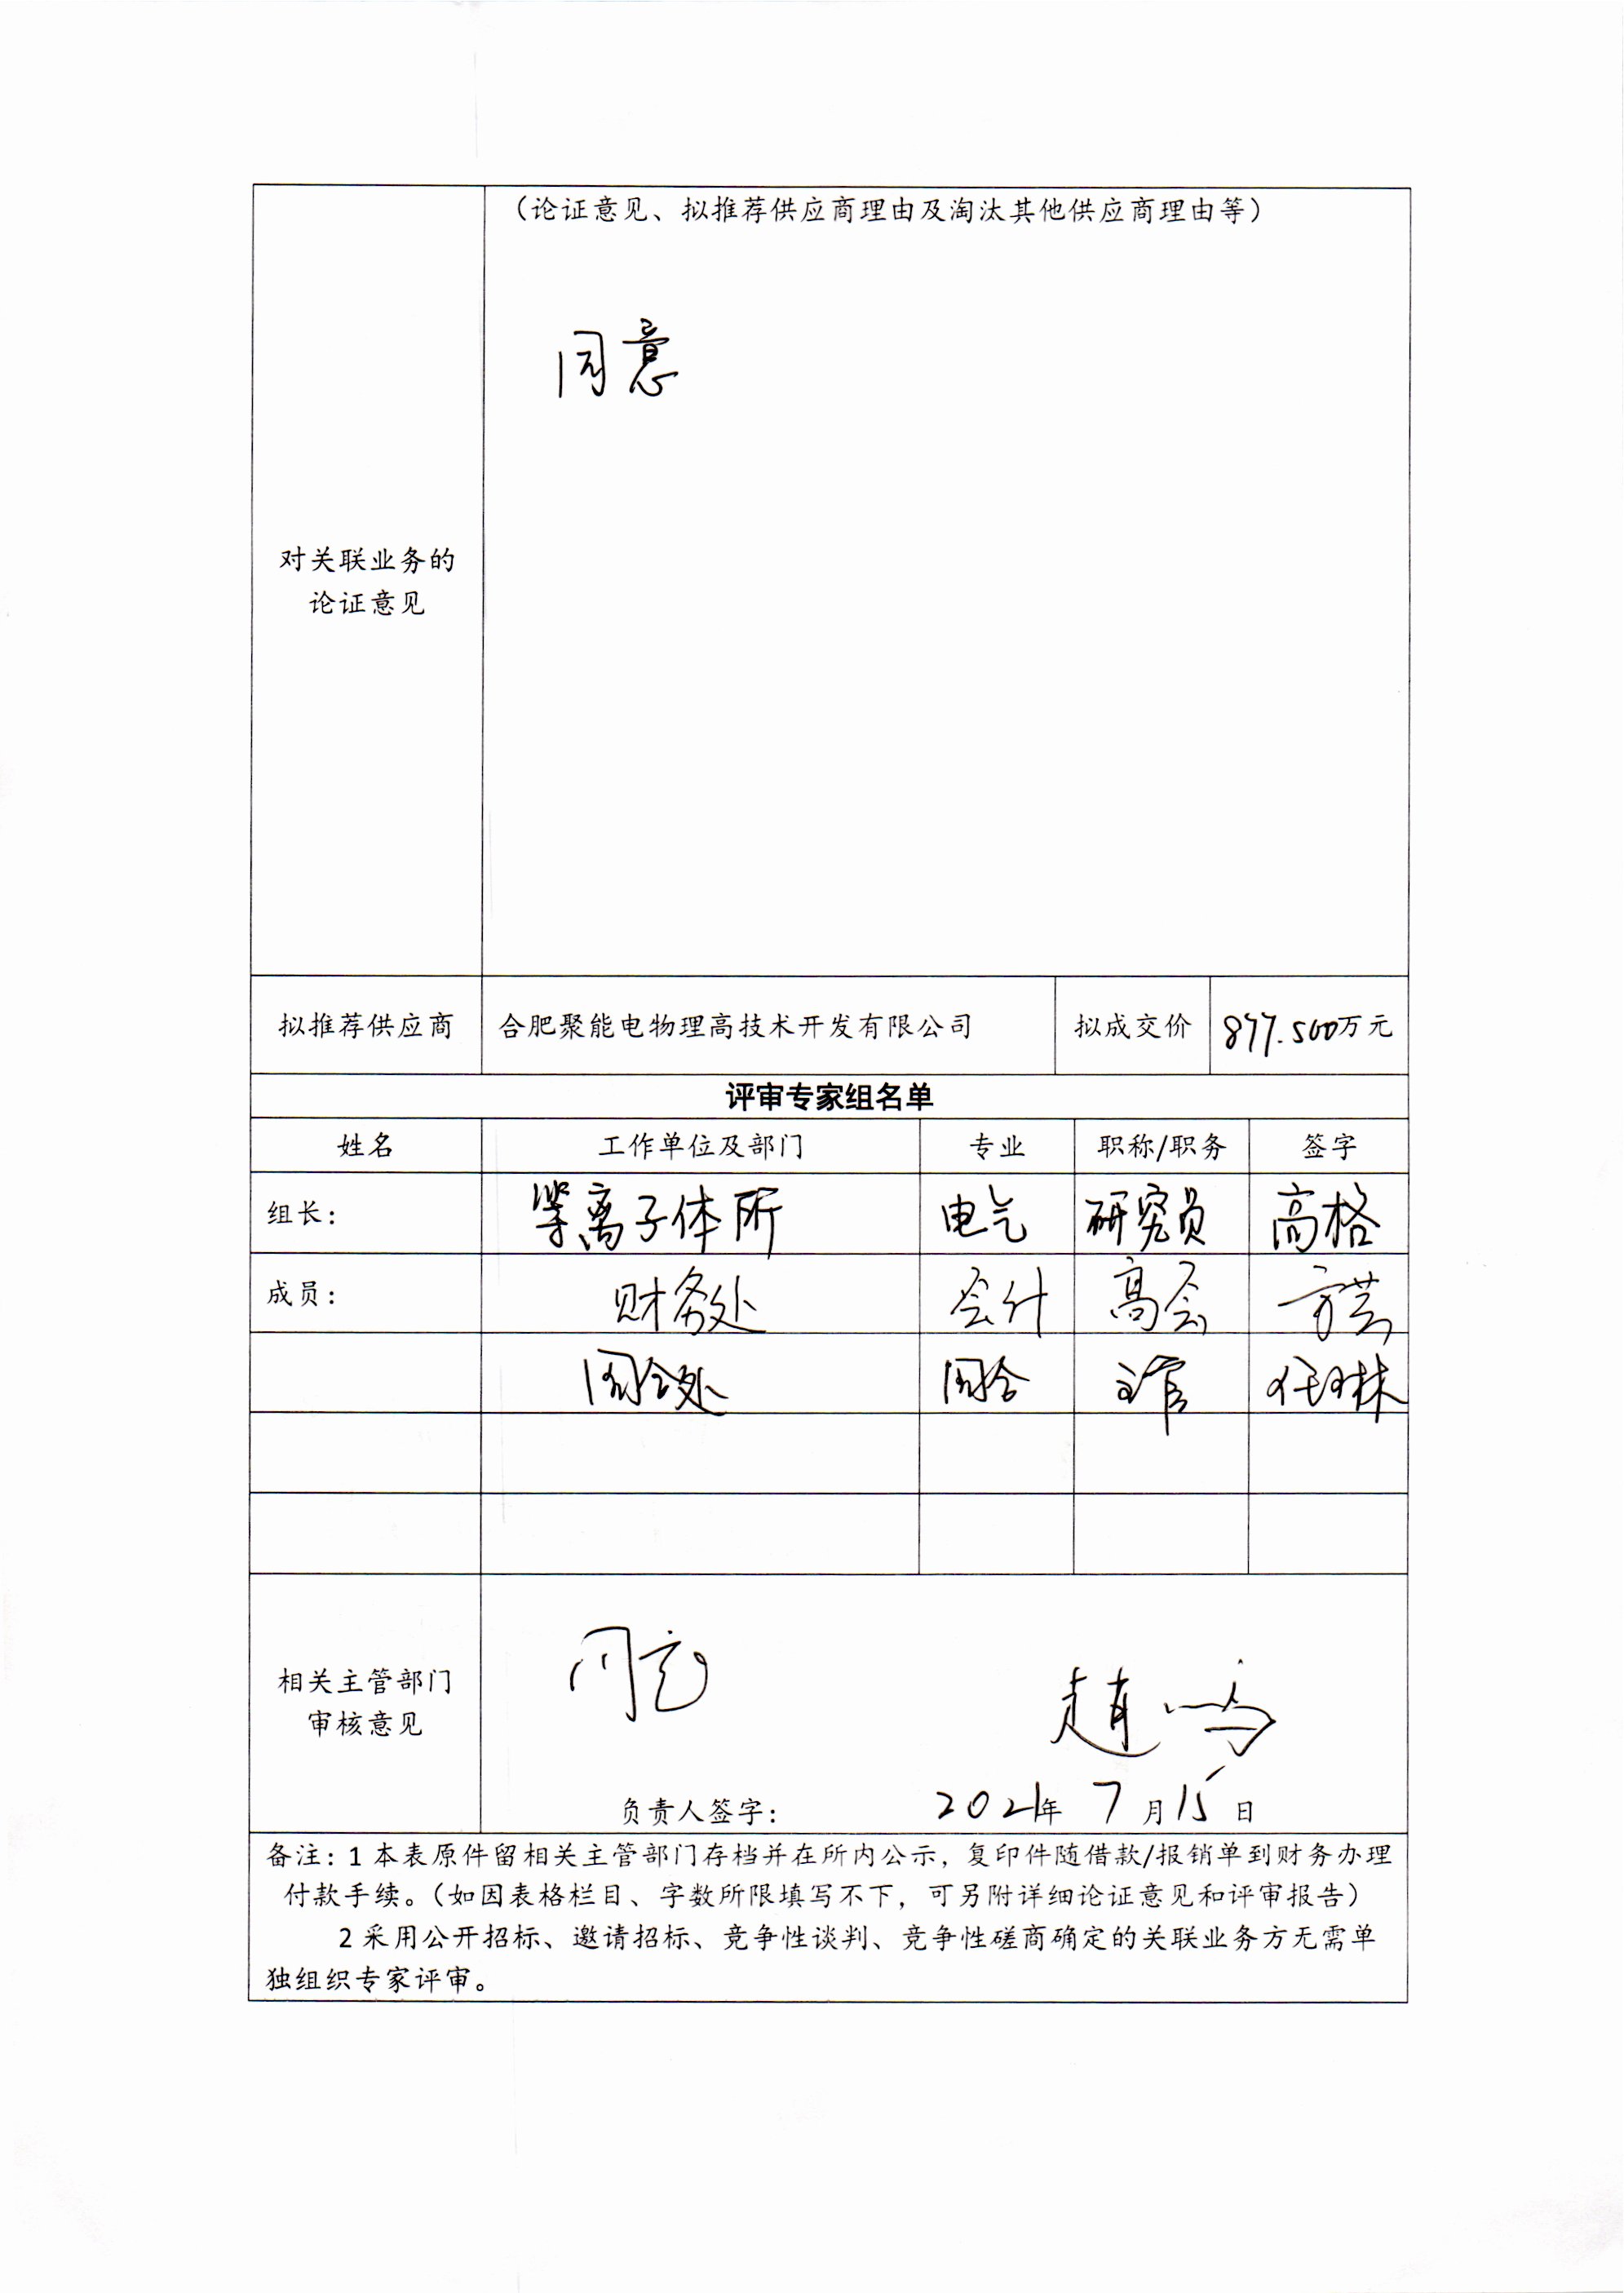 （论证意见、拟推荐供应商理由及淘汰其他供应商理由等）
同意
对关联业务的
论证意见
拟推荐供应商 合肥聚能电物理高技术开发有限公司 拟成交价 877.500万元
评审专家组名单
姓名 工作单位及部门 专业 职称/职务 签字
组长： 等离子体所 电气 研究员 高格
成员： 财务处 会计 高会
处 主管 任琳
同意
相关主管部门
审核意见
赵鸣
负责人签字： 2021年 7月15日
备注：1 本表原件留相关主管部门存档并在所内公示，复印件随借款/报销单到财务办理
付款手续。（如因表格栏目、字数所限填写不下，可另附详细论证意见和评审报告）
2 采用公开招标、邀请招标、竞争性谈判、竞争性磋商确定的关联业务方无需单
独组织专家评审。